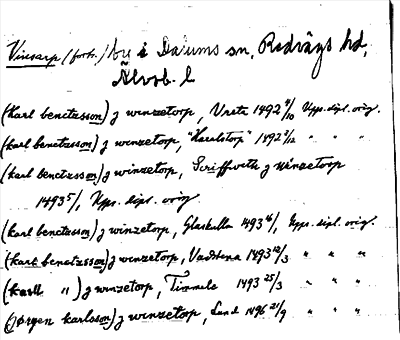 Vinsarp (forts.) by i Dalums sn, Redvägs hd,
Älvsb. l
(karl benctsson) j winzetorp, Vreta 1492 4/10 Upps. dipl. orig.
(karl benctzsson) j winzetorp, "Haralstorp" 1492 9/12 " " "
(karl benctzsson) j winzetorp, Scriffweth j winzetorp
1493 5/1, Upps. dipl. orig
(karl benctzsson) j winzetorp, 1493 16/1, Upps. dipl. orig.
(karl benctzsson) j winzetorp, Vadstena 1493 12/3 " " "
(karll ") j winzetorp, Timmele 1493 25/3 " " "
(jørgen karlsson) j winzetorp, Lund 1496 21/9 " " "